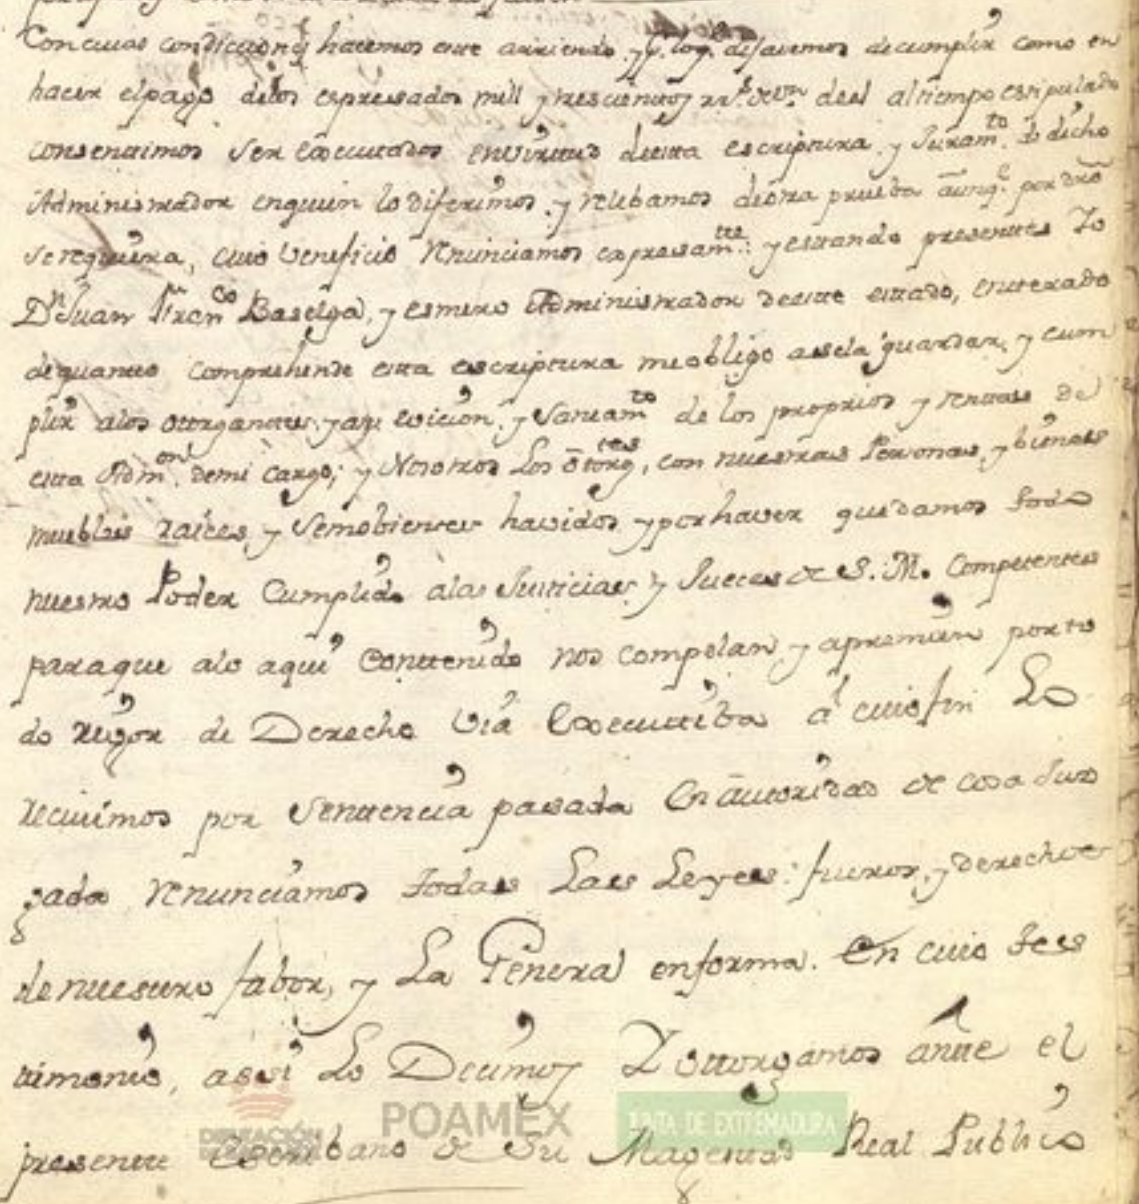 Con cuias condiciones hacemos este arriendo, y p. log. dejaremos de cumplir como en
hacer el pago de los espresados mill y trescientos rr.s de vn. deel al tiempo estipulado
consentimos ser executados en virtud de esta escriptura, y Juram.to de dicho
Administrador en quien lo diferimos, y relebamos de otra prueba aunq.e por dro
se requiera, cuio beneficio renunciamos espresam.te: y estando presentes Yo
Dn Juan Fran.co Baselga, y esmero Administrador de este estado, enterado
de quanto comprehende esta escriptura me obligo a sela guardar, y cum
plir a los otorgantes, y a su evicion, y saneam.to de los proprios y rentas de
esta Adm.on de mi cargo; y Nosotros Los otorg.tes, con nuestras Personas, y bienes
muebles raices, y semobientes havidos, y por haver que damos todo
nuestro Poder Cumplido a las Justicias y Jueces de S. M. Competentes
para que a lo aqui contenido nos compelan y apremien por to
do rigor de Derecho via Executiba a cuio fin Lo
recivimos por Sentencia pasada en autoridad de cosa Juz
gada renunciamos todas Las Leyes, fueros, y derechos
de nuestro fabor, y La General en forma. En cuio tes
timonio, assi Lo Decimos Y otorgamos ante el
presente Escribano de Su Magestad Real Publico
DIPUTACIÓN
DE BADAJOZ
POAMEX
JUNTA DE EXTREMADURA